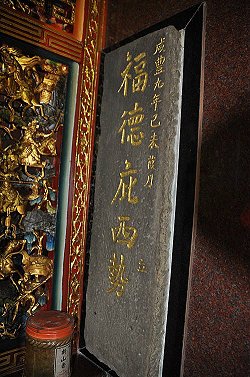 咸豐九年己未葭月
福德庇西勢
立